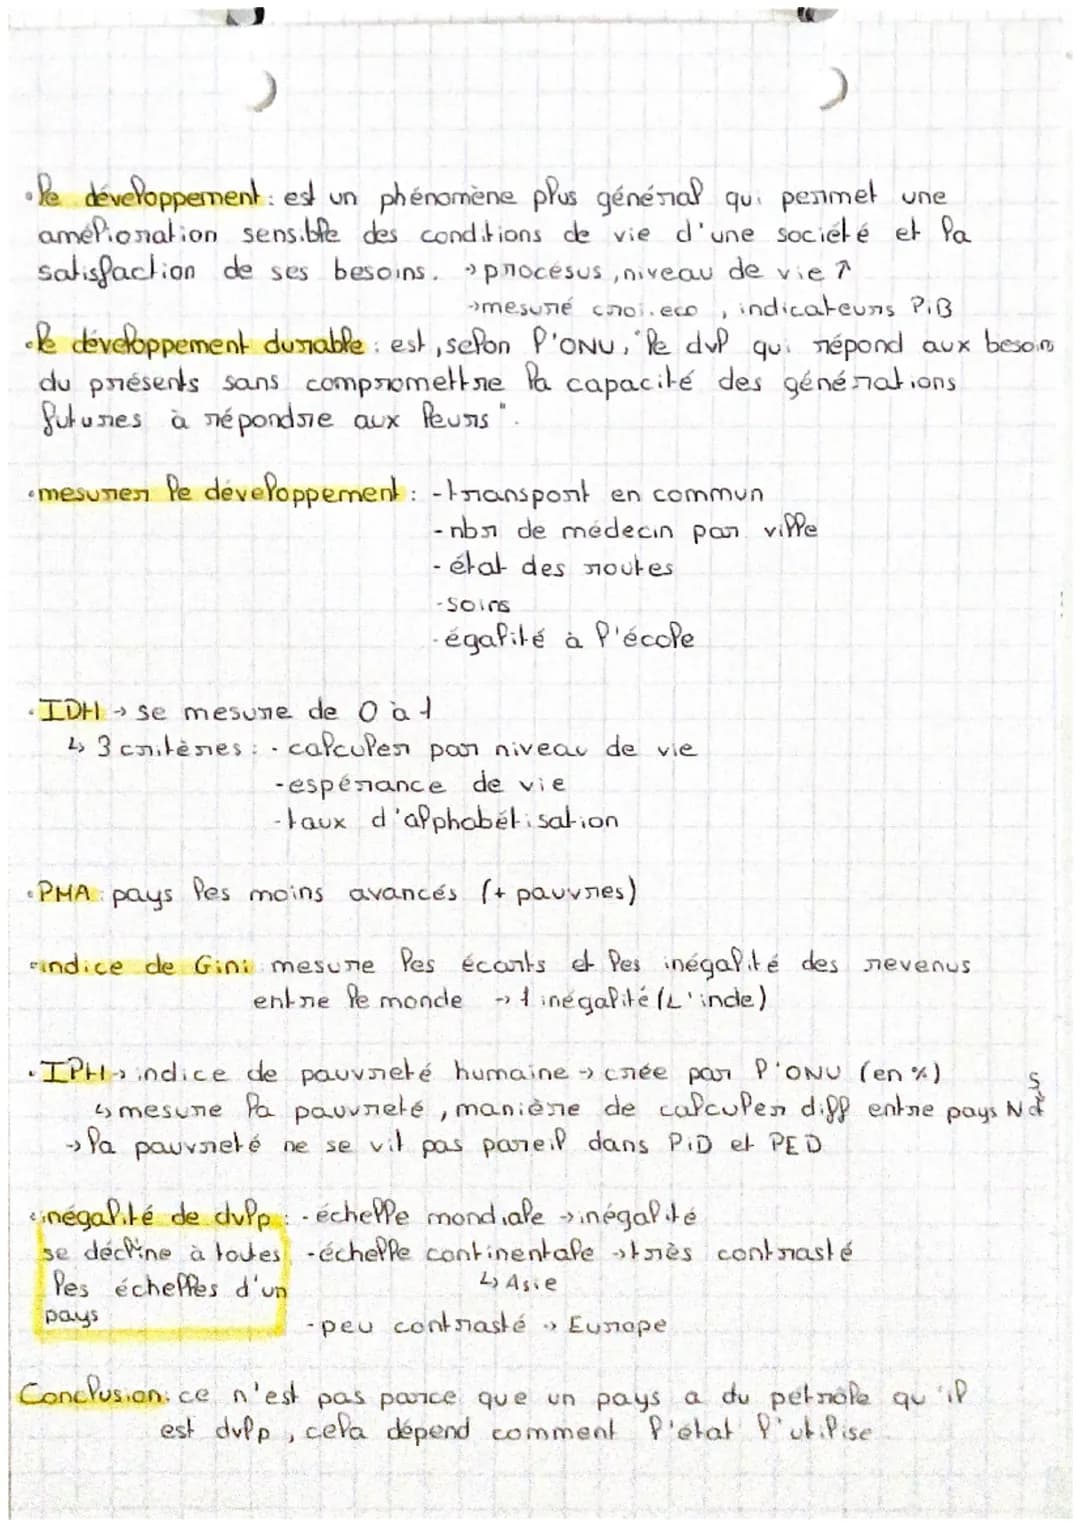 • le développement : est un phénomène plus général qui permet une
amélioration sensible des conditions de vie d'une société et la
satisfaction de ses besoins. → procésus, niveau de vie ↗
→ mesuré croi. eco, indicateurs PiB
• le développement durable : est, selon l'ONU, "le dvlp qui répond aux besoin
du présents sans compromettre la capacité des générations
futures à répondre aux leurs".
• mesurer le développement : - transport en commun
- nbr de médecin par ville
- état des routes
- soins
- égalité à l'école
• IDH → se mesure de 0 à 1
↳ 3 critères : - calculer par niveau de vie
- espérance de vie
- taux d'alphabétisation
• PMA : pays les moins avancés (+ pauvres)
• indice de Gini : mesure les écarts et les inégalité des revenus
entre le monde → 1 inégalité (L'inde)
• IPH → indice de pauvreté humaine → crée par l'ONU (en %)
↳ mesure la pauvreté, manière de calculer diff entre pays N et S
→ la pauvreté ne se vit pas pareil dans PiD et PED
• inégalité de dvlp : - échelle mondiale → inégalité
se décline à toutes - échelle continentale → très contrasté
les échelles d'un ↳ Asie
pays - peu contrasté → Europe
Conclusion : ce n'est pas parce que un pays a du pétrole qu'il
est dvlp, cela dépend comment l'état l'utilise